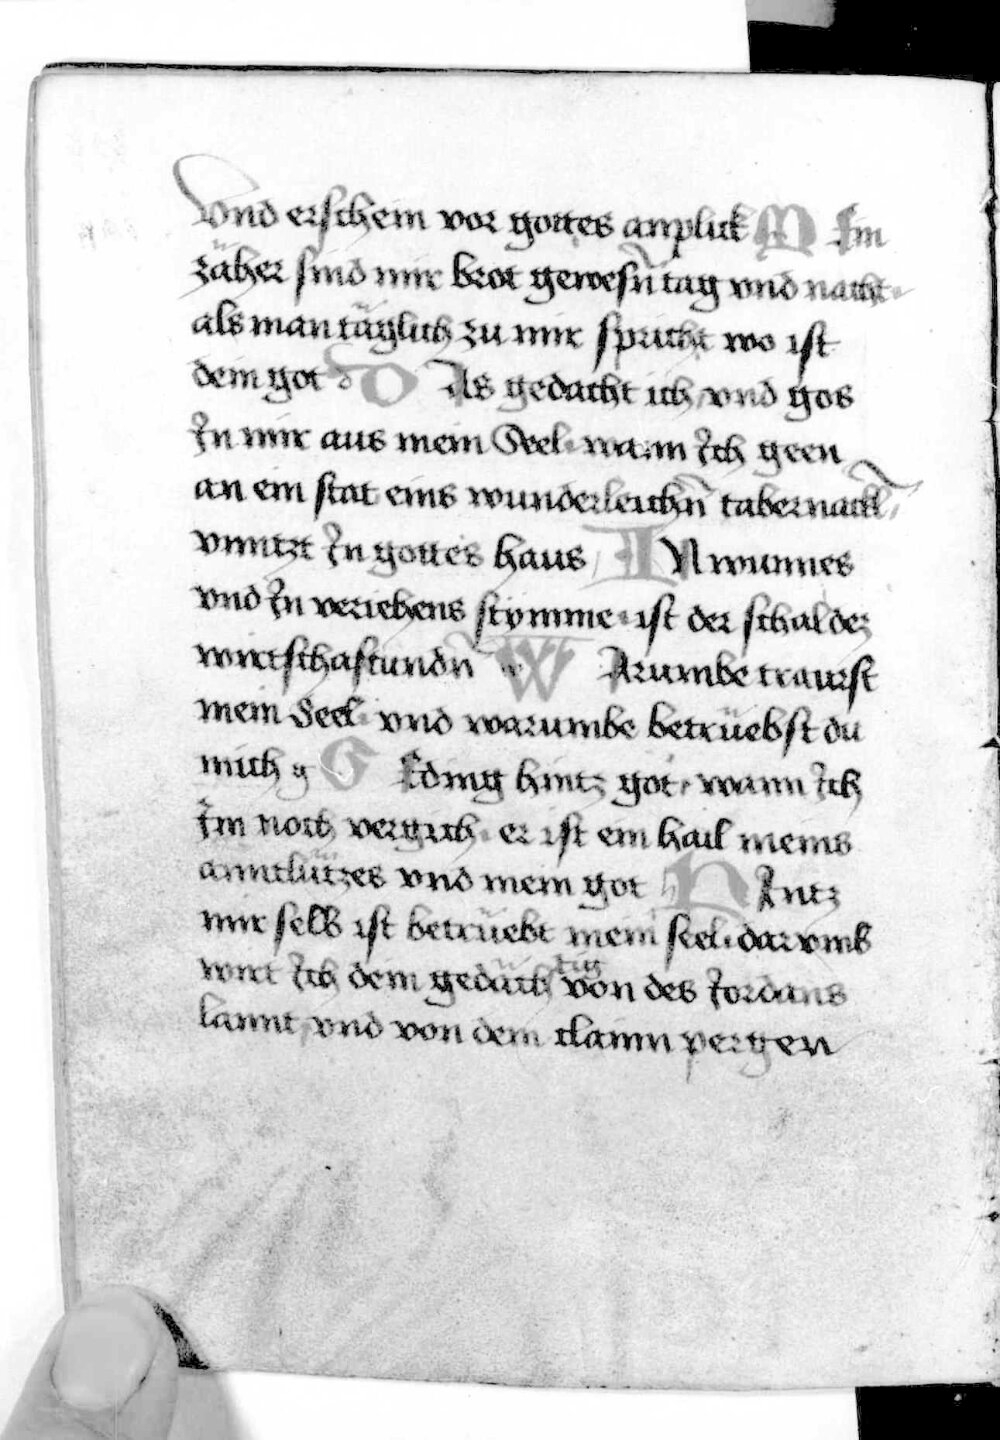 Vnd erschein vor gottes anplick M Ein
zäher sind mir brot gewesn̄ tag vnd nacht
als man täglich zu mir spricht wo ist
dein got d D As gedacht ich vnd gos
In mir aus mein Seel wann Ich geen
an ein stat eins wunderleichn̄ tabernackl
vnntzt In gottes haus I N wunnes
vnd In veriehens stymme ist der schal der
wirtschaftundn̄ w W Arumbe traurst
mein Seel vnd warumbe betrüebst du
mich g G Eding hintz got wann Ich
Im noch vergich er ist ein hail meins
anntlützes vnd mein got h H Intz
mir selb ist betrüebt mein seel darvmb
wirt Ich dein gedächtig von des Jordans
lannt vnd von dem clainn pergen